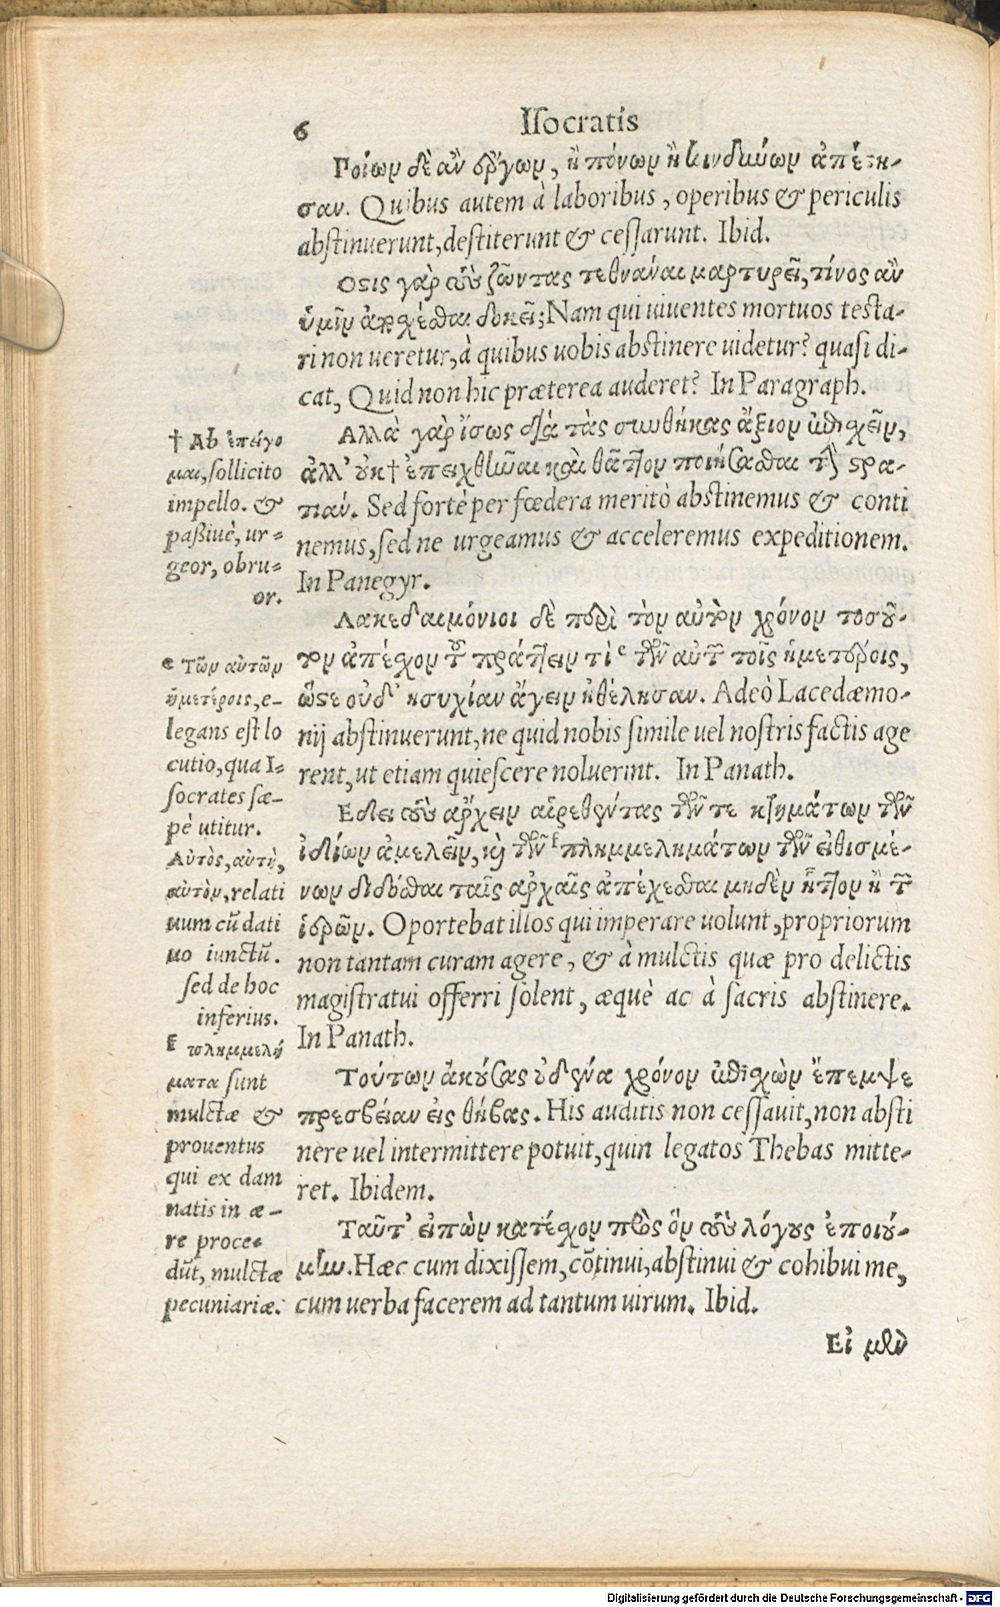 6 Isocratis
Ποίων δὲ ἂν ἔργων, ἢ πόνων ἢ κινδύνων ἀπέστη-
σαν. Quibus autem à laboribus, operibus & periculis
abstinuerunt, destiterunt & cessarunt. Ibid.
Ὅστις γὰρ τοὺς ζῶντας τεθνάναι μαρτυρεῖ, τίνος ἂν
ὑμῖν ἀπέχεσθαι δοκεῖ; Nam qui uiuentes mortuos testa-
ri non ueretur, à quibus uobis abstinere uidetur? quasi di-
cat, Quid non hic præterea auderet? In Paragraph.
Αλλὰ γὰρ ἴσως διὰ τὰς συνθήκας ἄξιον ἐπισχεῖν,
ἀλλ' οὐκ † ἐπειχθῶναι καὶ θᾶττον ποιήσασθαι τὴν στρα-
τιάν. Sed fortè per fœdera meritò abstinemus & conti
nemus, sed ne urgeamus & acceleremus expeditionem.
In Panegyr.
Λακεδαιμόνιοι δὲ περὶ τὸν αὐτὸν χρόνον τοσοῦ-
τον ἀπέχον τοῦ πράττειν τὶ e τῶν αὐτῶν τοῖς ἡμετέροις,
ὥστε οὐδ' ἡσυχίαν ἄγειν ἠθέλησαν. Adeò Lacedæmo-
nij abstinuerunt, ne quid nobis simile uel nostris factis age
rent, ut etiam quiescere noluerint. In Panath.
Εδει τοὺς ἄρχειν αἱρεθέντας τῶν τε κτημάτων τῶν
ἰδίων ἀμελεῖν, καὶ τῶν f πλημμελημάτων τῶν εἰθισμέ-
νων δίδοσθαι ταῖς ἀρχαῖς ἀπέχεσθαι μηδὲν ἧττον ἢ τῶν
ἱερῶν. Oportebat illos qui imperare uolunt, propriorum
non tantam curam agere, & à mulctis quæ pro delictis
magistratui offerri solent, æquè ac à sacris abstinere.
In Panath.
Τούτων ἀκούσας οὐδένα χρόνον ἐπισχὼν ἔπεμψε
πρεσβείαν εἰς θήβας. His auditis non cessauit, non absti
nere uel intermittere potuit, quin legatos Thebas mitte-
ret. Ibidem.
Ταῦτ' εἰπὼν κατέχον πρὸς ὃν τοὺς λόγους ἐποιού-
μην. Hæc cum dixissem, cōtinui, abstinui & cohibui me,
cum uerba facerem ad tantum uirum. Ibid.
Εἰ μὲν
† Ab ἐπείγο
μαι, sollicito
impello. &
paßiuè, ur-
geor, obru-
or.
e Τῶν αὐτῶν
ἡμετέροις, e-
legans est lo
cutio, qua I-
socrates sæ-
pè utitur.
Αὐτὸς, αὐτὴ,
αὐτὸν, relati
uum cū dati
uo iunctū.
sed de hoc
inferius.
f πλημμελή
ματα sunt
mulctæ &
prouentus
qui ex dam
natis in æ-
re proce-
dūt, mulctæ
pecuniariæ.
Digitalisierung gefördert durch die Deutsche Forschungsgemeinschaft - DFG